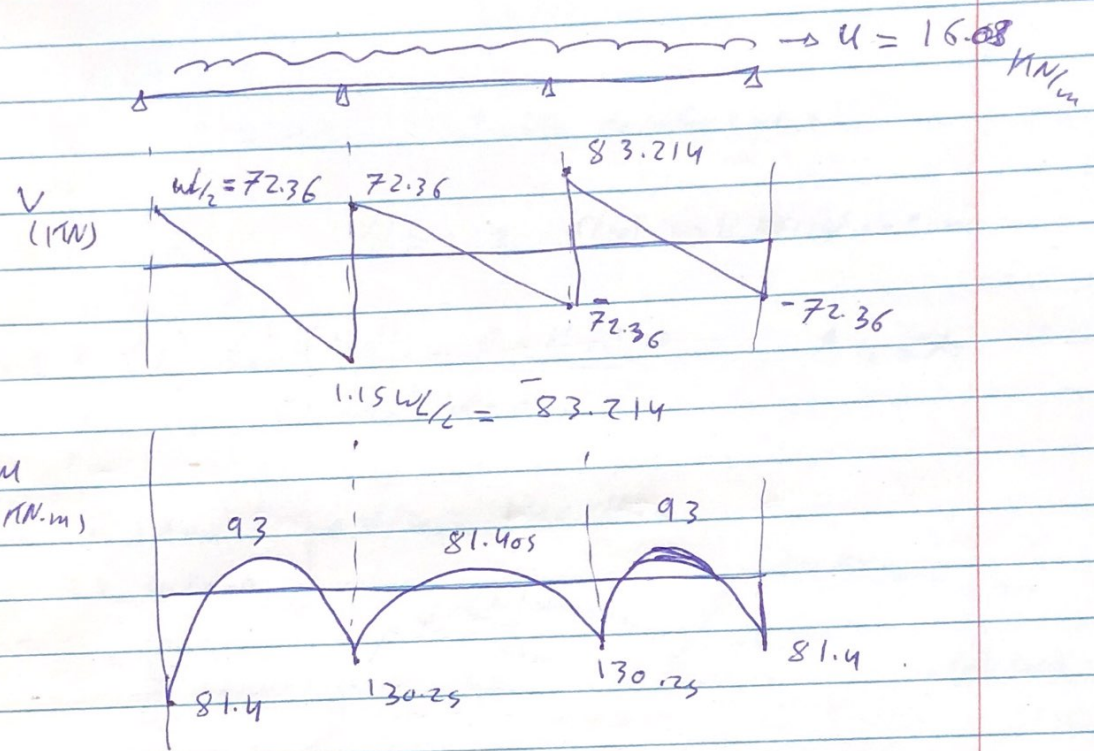 → U = 16.08 KN/m
83.214
V wl/2 = 72.36 72.36
(KN)
-72.36 -72.36
1.15 wl/2 = -83.214
M
(KN.m)
93 81.405 93
81.4 130.25 130.25 81.4